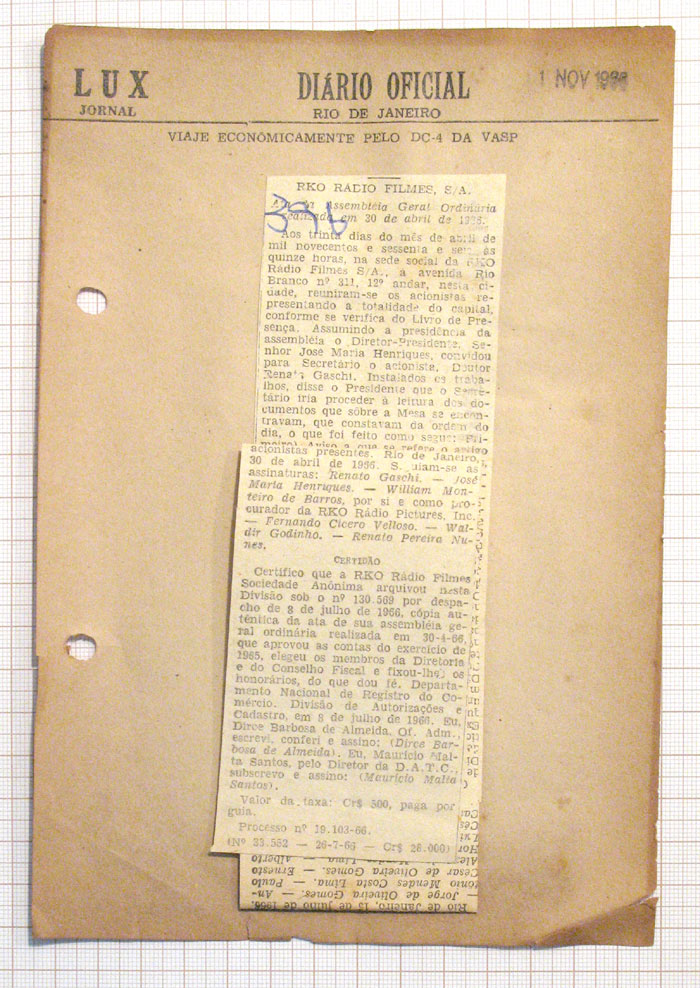 LUX
JORNAL
DIÁRIO OFICIAL
RIO DE JANEIRO
1 NOV 1966
VIAJE ECONÓMICAMENTE PELO DC-4 DA VASP
RKO RÁDIO FILMES, S/A.
396
Assembléia Geral Ordinária
realizada em 30 de abril de 1966.
Aos trinta dias do mês de abril de
mil novecentos e sessenta e seis, às
quinze horas, na sede social da RKO
Rádio Filmes S/A., a avenida Rio
Branco nº 311, 12º andar, nesta ci-
dade, reuniram-se os acionistas re-
presentando a totalidade do capital,
conforme se verifica do Livro de Pre-
sença. Assumindo a presidência da
assembléia o Diretor-Presidente, Se-
nhor José Maria Henriques, convidou
para Secretário o acionista, Doutor
Renato Gaschi. Instalados os traba-
lhos, disse o Presidente que o Secre-
tário iria proceder à leitura dos do-
cumentos que sôbre a Mesa se encon-
travam, que constavam da ordem do
dia, o que foi feito como segue: Pri-
meiro) Aviso a que se refere o artigo
acionistas presentes. Rio de Janeiro,
30 de abril de 1966. Seguiam-se as
assinaturas: Renato Gaschi. — José
Maria Henriques. — William Mon-
teiro de Barros, por si e como pro-
curador da RKO Rádio Pictures. Inc.
— Fernando Cicero Velloso. — Wal-
dir Godinho. — Renato Pereira Nu-
nes.
CERTIDÃO
Certifico que a RKO Rádio Filmes
Sociedade Anônima arquivou nesta
Divisão sob o nº 130.569 por despa-
cho de 8 de julho de 1966, cópia au-
têntica da ata de sua assembléia ge-
ral ordinária realizada em 30-4-66,
que aprovou as contas do exercício de
1965, elegeu os membros da Diretoria
e do Conselho Fiscal e fixou-lhes os
honorários, do que dou fé. Departa-
mento Nacional de Registro do Co-
mércio. Divisão de Autorizações e
Cadastro, em 8 de julho de 1966. Eu,
Dirce Barbosa de Almeida, Of. Adm.,
escrevi, conferi e assino: (Dirce Bar-
bosa de Almeida). Eu, Maurício Mal-
ta Santos, pelo Diretor da D.A.T.C.,
subscrevo e assino: (Maurício Malta
Santos).
Valor da taxa: Cr$ 500, paga por
guia.
Processo nº 19.103-66.
(Nº 33.552 — 26-7-66 — Cr$ 28.000)
Rio de Janeiro, 15 de julho de 1966.
— Jorge de Oliveira Gomes. — An-
tonio Mendes Costa Lima. — Paulo
César de Oliveira Gomes. — Ernesto
Alberto